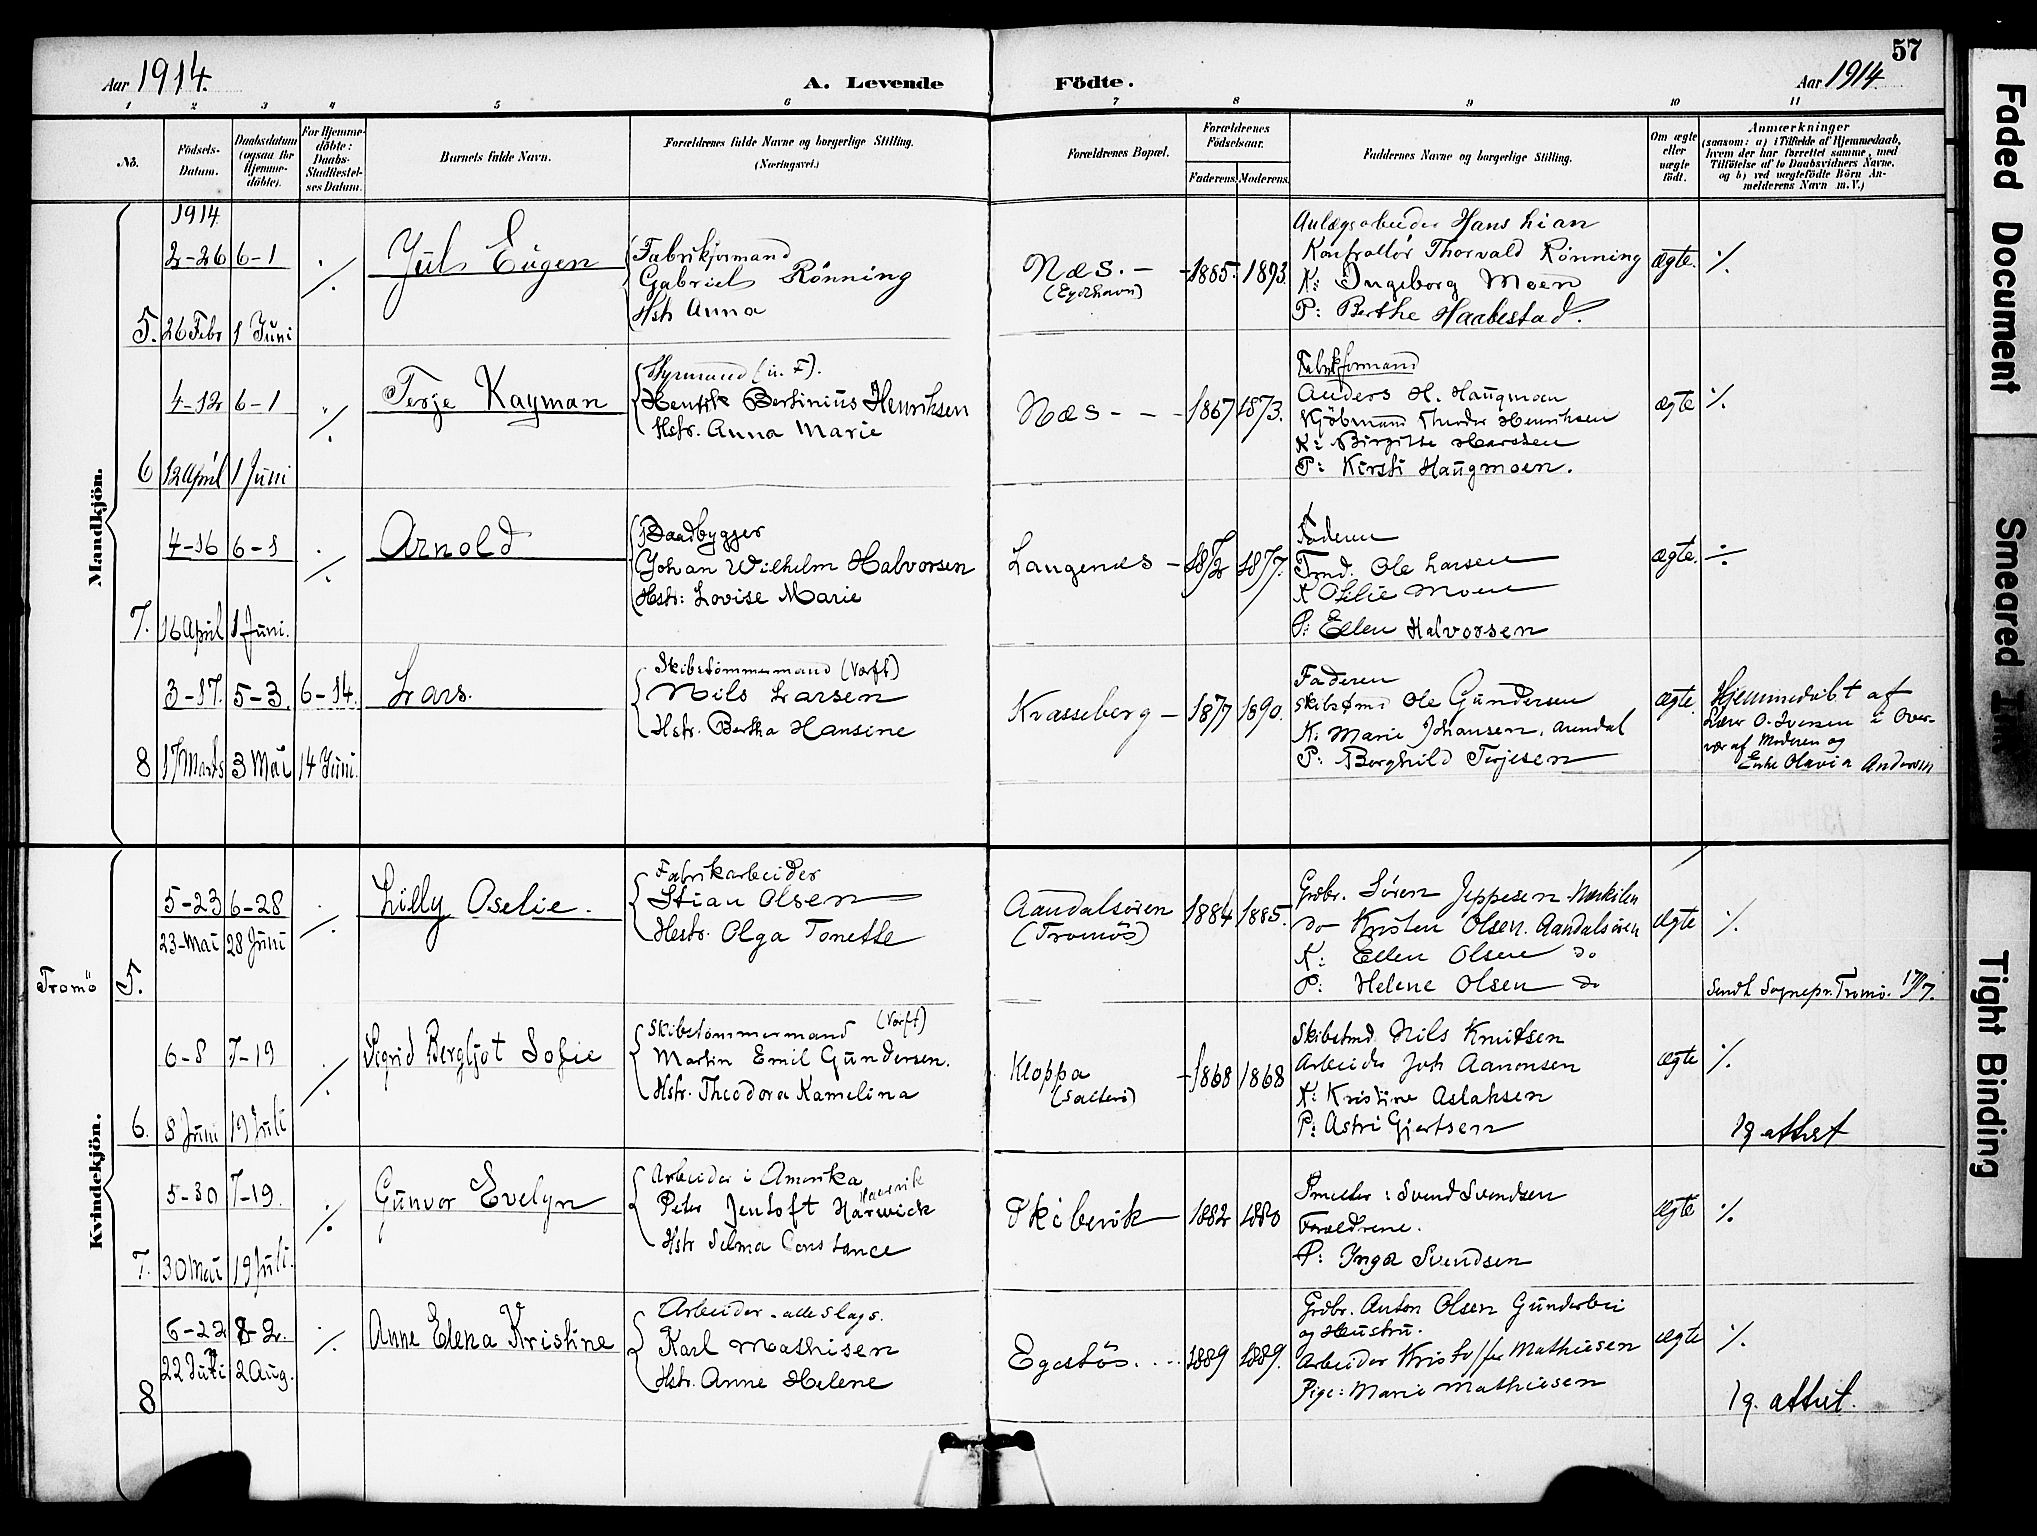 57
Aar 1914.
A. Levende
Födte.
Aar 1914
1 2 3 4 5 6 7 8 9 10 11
No.
Födsels-Datum.
Daabsdatum (ogsaa for Hjemme-döbte).
For Hjemme-döbte: Daabs-Stadfæstel-ses Datum.
Barnets fulde Navn.
Forældrenes fulde Navne og borgerlige Stilling.
(Næringsvei.)
Forældrenes Bopæl.
Forældrenes Födselsaar.
Faderens. Moderens.
Faddernes Navne og borgerlige Stilling.
Om ægte eller uægte födt.
Anmærkninger
(saasom: a) i Tilfælde af Hjemmedaab,
hvem der har forrettet samme, med
Tilföielse af to Daabsvidners Navne,
og b) ved uægtefödte Börn An-
melderens Navn m. V.)
Mandkjön.
1914
2-26 6-1 ./.
5. 26 Febr 1 Juni
Jul Eugen
Fabrikformand
Gabriel Rönning
Hst. Anna
Næs. -
(Eydehavn)
1885. 1893.
Anlægsarbeider Hans Lian
Kontrollör Thorvald Rönning
K: Ingeborg Moen
P: Berthe Haabestad.
ægte. ./.
4-12 6-1 ./.
6 12 April 1 Juni
Terje Kayman
Styrmand (u. F).
Henrik Bertinius Henriksen
Hstr. Anna Marie
Næs - -
1867 1873.
Fabrikformand
Anders H. Haugmoen
Kjöbmand Theodor Henriksen
K: Birgitte Hansen
P: Kirsti Haugmoen.
ægte ./.
4-16 6-1 ./.
7. 16 April 1 Juni.
Arnold
Baadbygger
Johan Wilhelm Halvorsen
Hstr: Lovise Marie
Langenes -
1872 1877.
Faderen
Tmd. Ole Larsen
K Otilie Moen
P: Ellen Halvorsen
ægte. ./.
3-17. 5-3. 6-14.
8 17 Marts 3 Mai 14 Juni.
Lars.
Skibstömmermand (Værft)
Nils Larsen
Hstr. Bertha Hansine
Krasseberg -
1877 1890.
Faderen
Skibstømd Ole Gundersen
K. Marie Johansen, Arendal
P: Borghild Terjesen
ægte.
Hjemmedøbt af
Lærer O. Iversen i Over-
vær af Moderen og
Enke Olavia Andersen
Kvindekjön.
Tromö
5-23 6-28 ./.
23-Mai 28 Juni
5.
Lilly Oselie.
Fabrikarbeider
Stian Olsen
Hstr. Olga Tonette
Aandalsören
(Tromös)
1884 1885.
Grdbr. Sören Jeppesen Narkilen
do Kristen Olsen. Aandalsören
K: Ellen Olsen do
P: Helene Olsen do
ægte ./.
Sendt Sognepr. Tromö. 17/7.
6-8 7-19 ./.
6. 8 Juni 19 Juli
Sigrid Bergljot Sofie
Skibstömmermand (Værft)
Martin Emil Gundersen.
Hstr. Theodora Kamelina
Kloppa
(Salterö)
1868 1868
Skibstmd Nils Knutsen
Arbeider Joh Aanonsen
K: Kristine Aslaksen
P: Astri Gjertsen
ægte ./.
19 attest
5-30 7-19. ./.
7. 30 Mai 19 Juli.
Gunvor Evelyn
Arbeider i Amerika
Peter Jentoft Harwick
Hstr Selma Constance
Skibevik
1882 1880
Smeller : Svend Svendsen
Forældrene.
P: Inga Svendsen
ægte ./.
6-22 8-2. ./.
22 Juni 2 Aug.
8
Anne Elena Kristine
Arbeider - alle slags.
Karl Mathisen
Hstr. Anne Helene
Egestös. . .
1889 1889.
Grdbr. Anton Olsen Gunderbei
og Hustru.
Arbeider Kristoffer Mathiesen
Pige: Marie Mathiesen
ægte ./.
19. attest.
Faded Document
Smeared Ink
Tight Binding